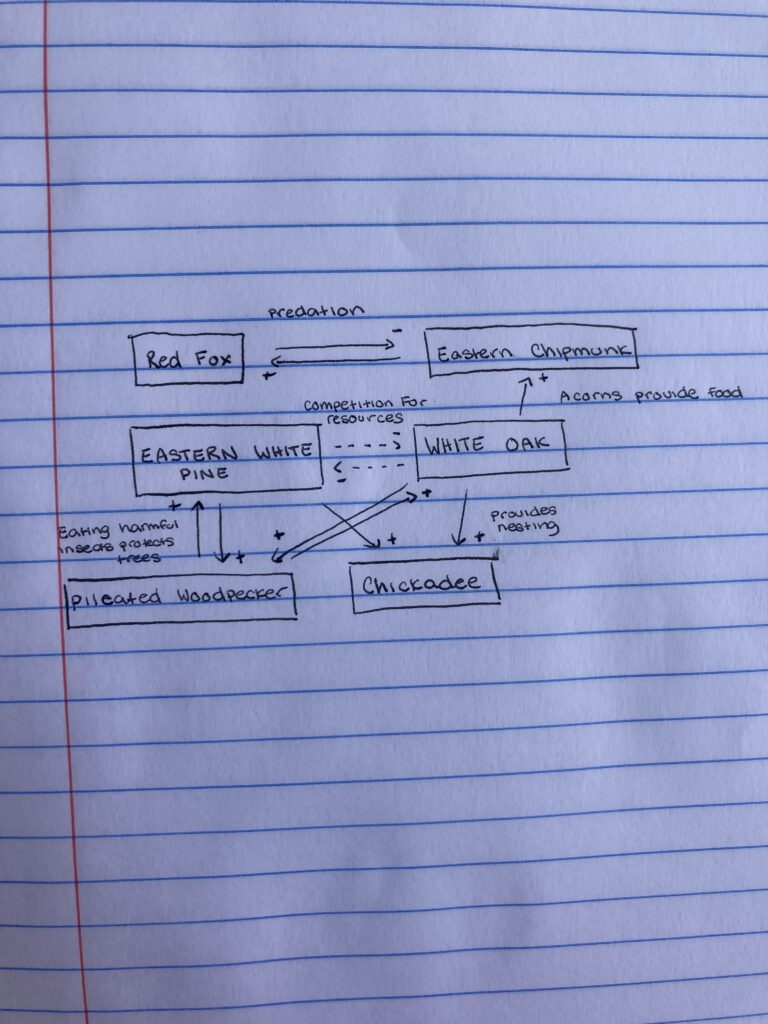 predation
-
Red Fox
Eastern Chipmunk
+
+
Acorns provide food
Competition for
resources
-
EASTERN WHITE
PINE
WHITE OAK
-
+
+
Eating harmful
insects protects
trees
+
+
+
Provides
nesting
+
Pileated Woodpecker
Chickadee